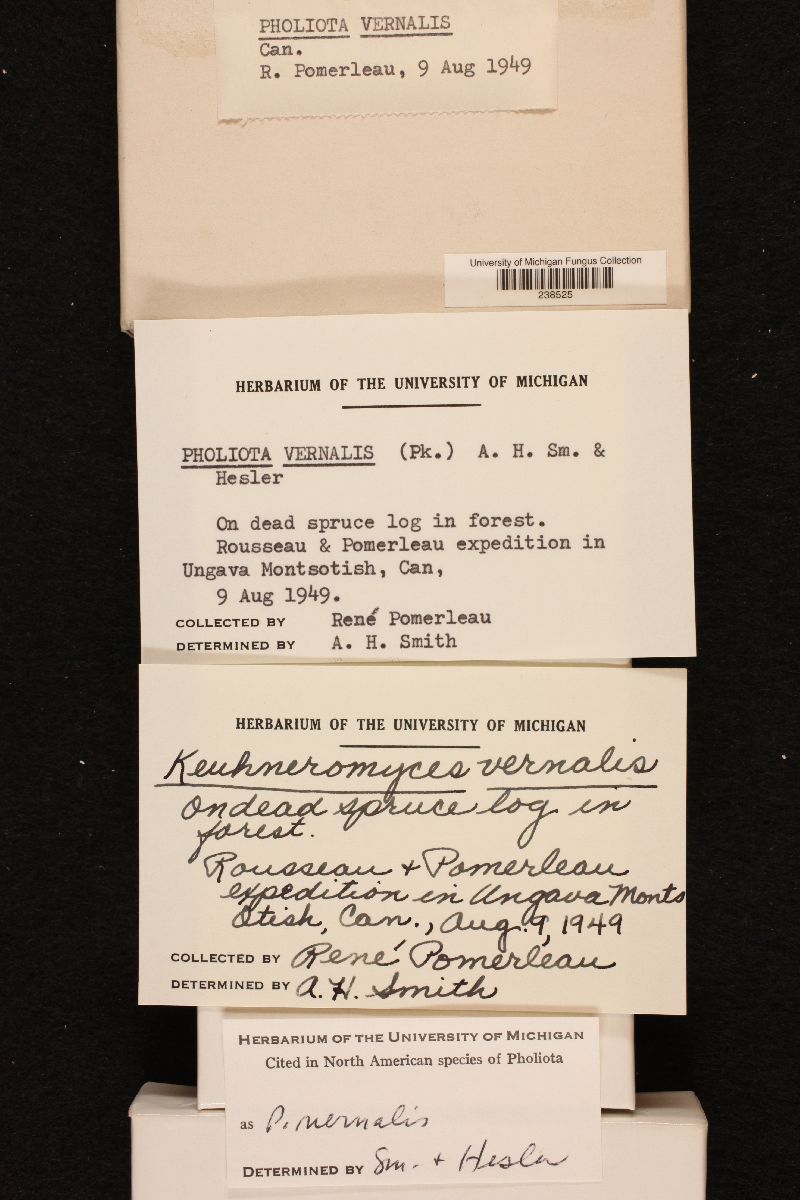 PHOLIOTA VERNALIS
Can.
R. Pomerleau, 9 Aug 1949
University of Michigan Fungus Collection
238525
HERBARIUM OF THE UNIVERSITY OF MICHIGAN
PHOLIOTA VERNALIS (Pk.) A. H. Sm. &
Hesler
On dead spruce log in forest.
Rousseau & Pomerleau expedition in
Ungava Montsotish, Can,
9 Aug 1949.
COLLECTED BY René Pomerleau
DETERMINED BY A. H. Smith
HERBARIUM OF THE UNIVERSITY OF MICHIGAN
Keuhneromyces vernalis
On dead spruce log in
forest.
Rousseau + Pomerleau
expedition in Ungava Monts
Otish, Can., Aug. 9, 1949
COLLECTED BY René Pomerleau
DETERMINED BY A. H. Smith
HERBARIUM OF THE UNIVERSITY OF MICHIGAN
Cited in North American species of Pholiota
as P. vernalis
DETERMINED BY Sm. + Hesler